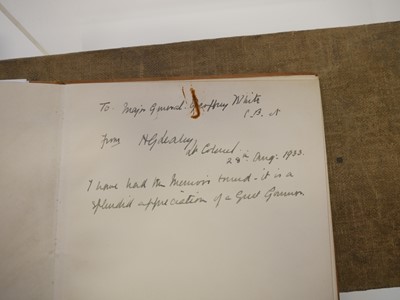 To. Major General Geoffrey White
C.B. &
From
Lt Colonel
28th Aug: 1933.
I have had the Memoirs bound - it is a
splendid appreciation of a Great Gunner